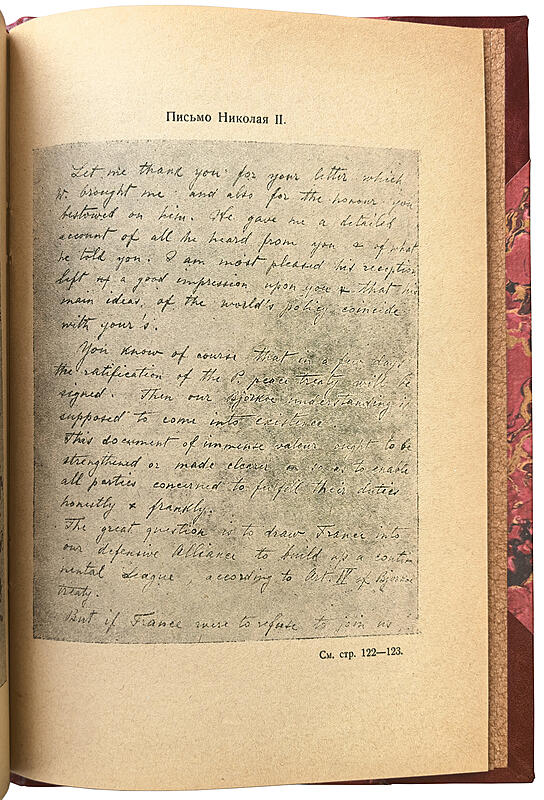 Письмо Николая II.
Let me thank you for your letter which
W. brought me and also for the honour you
bestowed on him. He gave me a detailed
account of all he heard from you & of what
he told you. I am most pleased his reception
left a good impression upon you & that his
main ideas of the world's policy coincide
with your's.
You know of course that in a few days
the ratification of the P. peace treaty will be
signed. Then our Bjorkoe understanding is
supposed to come into existence.
This document of immense valour ought to be
strengthened or made clearer so as to enable
all parties concerned to fulfil their duties
honestly & frankly.
The great question is to draw France into
our defensive Alliance to build up a conti-
nental League, according to Art. IV of Bjorkoe
treaty.
But if France were to refuse to join us
См. стр. 122—123.